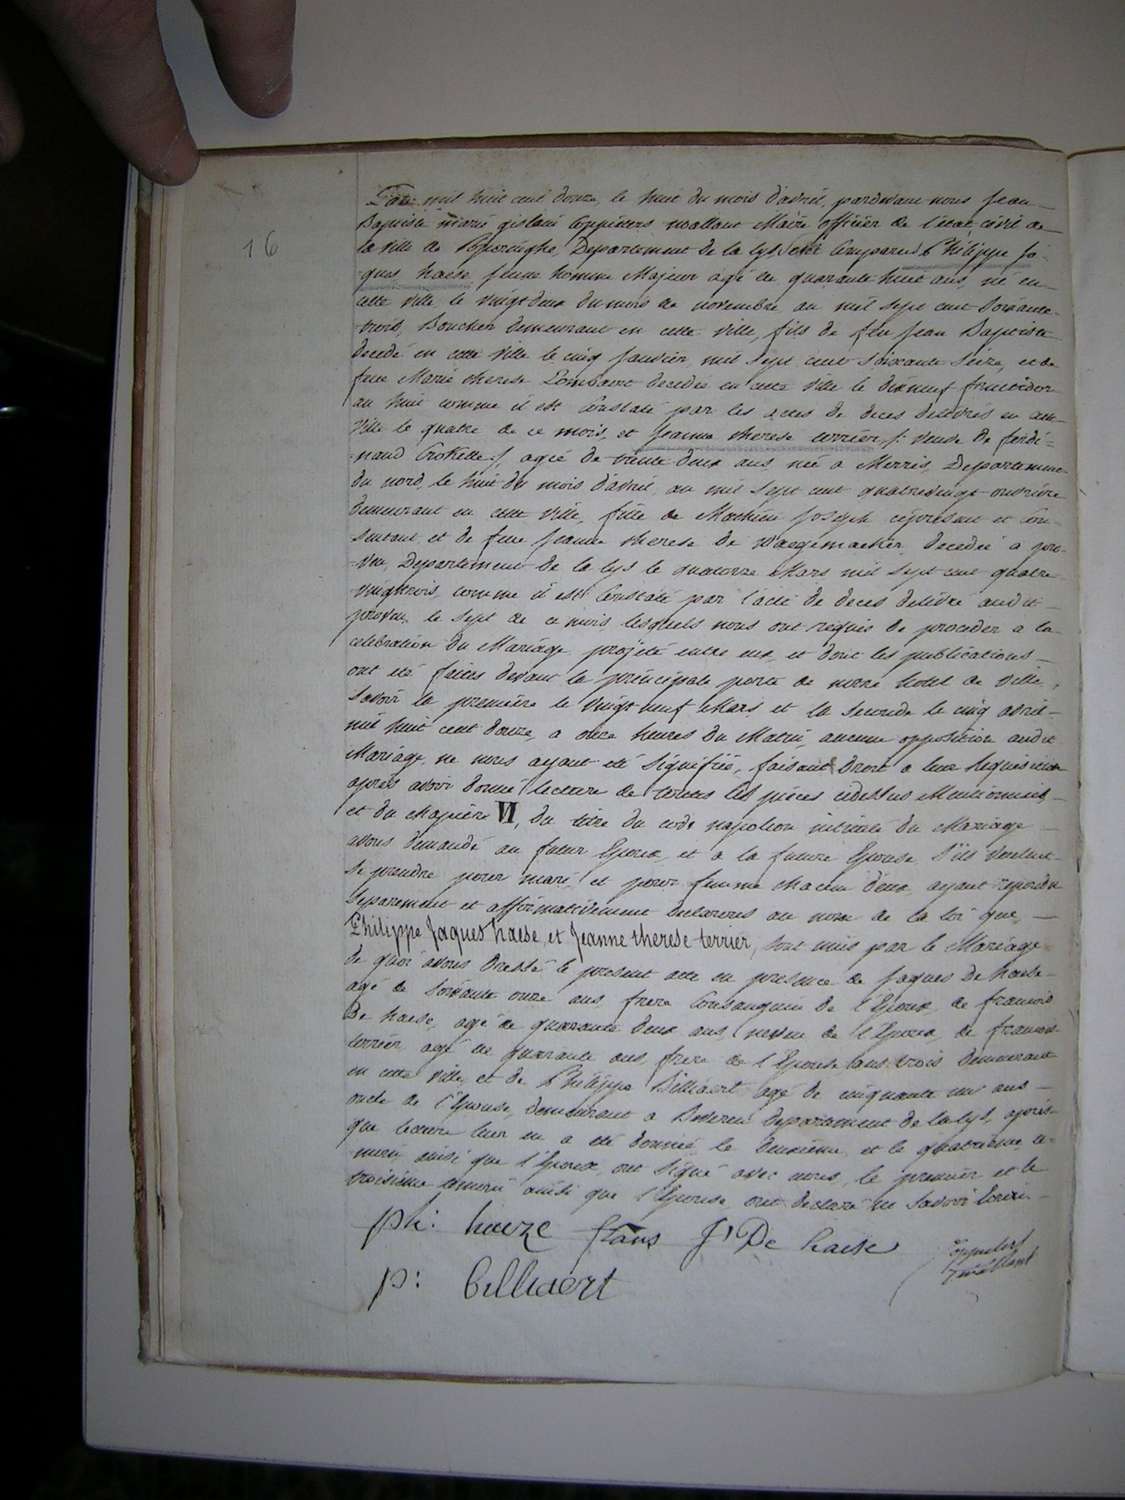 16
L'an mil huit cent douze, le huit du mois d'avril, pardevant nous Jean
Baptiste marie gislain wallant Maire officier de l'état civil de
la ville de Department de la Lys sont Comparus Philippe Ja-
ques haese jeune homme Majeur agé de quarante huit ans, né en
cette ville le vingt deux du mois de novembre an mil sept cent soixante
trois, Boucher demeurant en cette ville, fils de feu Jean Baptiste
decedé en cette ville le cinq Janvier mil sept cent soixante seize, et de
feue Marie therese Lombaert decedée en cette ville le dixneuf fructidor
an huit comme il est Constaté par les actes de deces delivrés en cette
ville le quatre de ce mois, et Jeanne therese terrier, /: veuve de ferdi-
nand /, agée de trente deux ans née a Merris, Departement
du nord, le huit du mois d'avril an mil sept cent quatrevingt ouvriere
demeurant en cette ville, fille de Mathieu Joseph cipresent et Con-
sentant et de feue Jeanne therese de decedée a pro-
ven, Departement de la Lys le quatorze Mars mil sept cent quatre
vingt trois, comme il est Constaté par l'acte de deces delivré audit
proven le sept de ce mois lesquels nous ont requis de proceder a la
celebration du Mariage projeté entre eux, et dont les publications
ont été faites devant la principale porte de notre hotel de ville,
savoir la premiere le vingt neuf Mars et la seconde le cinq avril
mil huit cent douze, a onze heures du Matin, aucune opposition audit
Mariage ne nous ayant été signifiée, faisant Droit a leur Requisition
après avoir donné lecture de toutes les pièces cidessus Mentionnées
et du chapitre VI, du titre du code napoleon intitulé du Mariage
avons demandé au futur Epoux et a la future Epouse s'ils veulent
se prendre pour mari, et pour femme chacun d'eux ayant repondu
separement et affirmativement declarons au nom de la loi que,
Philippe Jaques haese, et Jeanne therese terrier, sont unis par le Mariage
de quoi avons dressé le present acte en presence de Jaques de haese
agé de soixante onze ans, frere Consanguin de l'Epoux, de francois
De haese, agé de quarante deux ans, neveu de l'Epoux, de francois
terrier agé de quarante ans, frere de l'Epouse tous trois demeurant
en cette ville, et de Philippe Billiaert agé de cinquante un ans
oncle de l'Epouse, demeurant a Beveren Departement de la Lys, après
que lecture leur en a été donnée le deuxieme et le quatrieme te-
moin ainsi que l'Epoux ont signé avec nous, le premier et le
troisieme temoin ainsi que l'Epouse, ont declaré ne savoir Ecrire
ph: haeze frans Js De haese
p: billiaert